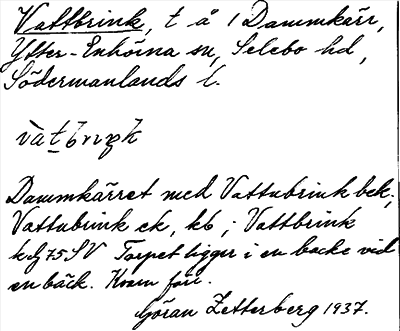 Vattbrink, t å 1 Dammkärr,
Ytter-Enhörna sn, Selebo hd,
Södermanlands l.
vàt̬briŋk
Dammkärret med Vattubrink bek,
Vattubrink ek, kb; Vattbrink
75 SV Torpet ligger i en backe vid
en bäck. Kvarn förr.
Göran Zetterberg 1937.